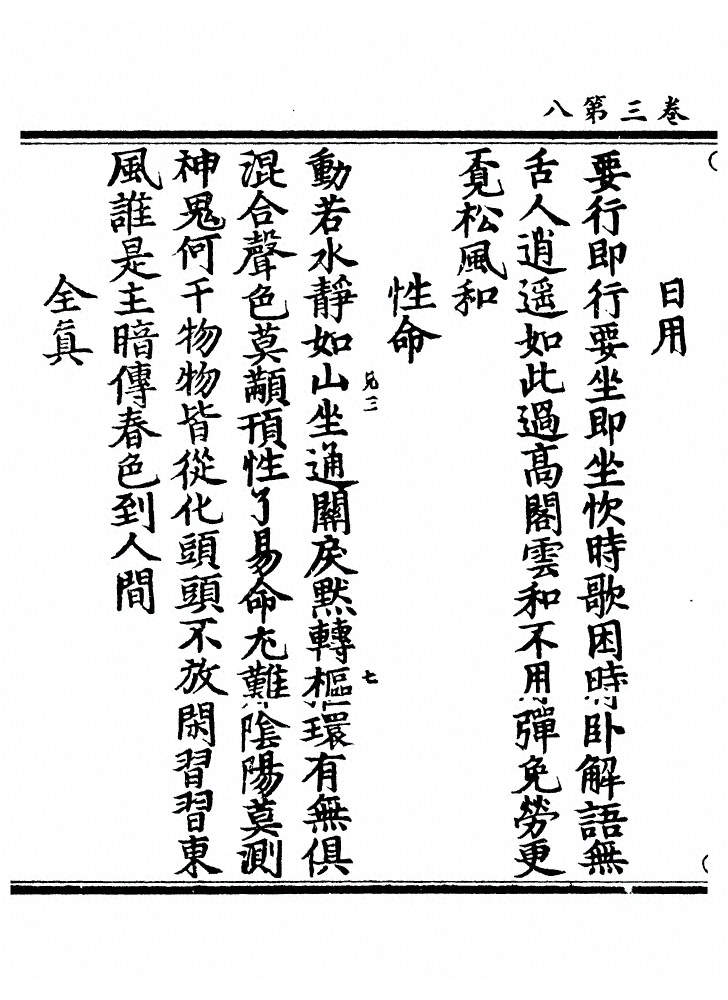 卷三第八
日用
要行即行要坐即坐忺時歌困時卧解語無
舌人逍遥如此過高閣雲和不用彈免勞更
覔松風和
性命
兄三
七
動若水靜如山坐通關戾默轉樞環有無俱
混合聲色莫顢頇性了易命尤難陰陽莫測
神鬼何干物物皆從化頭頭不放閑習習東
風誰是主暗傳春色到人間
全眞